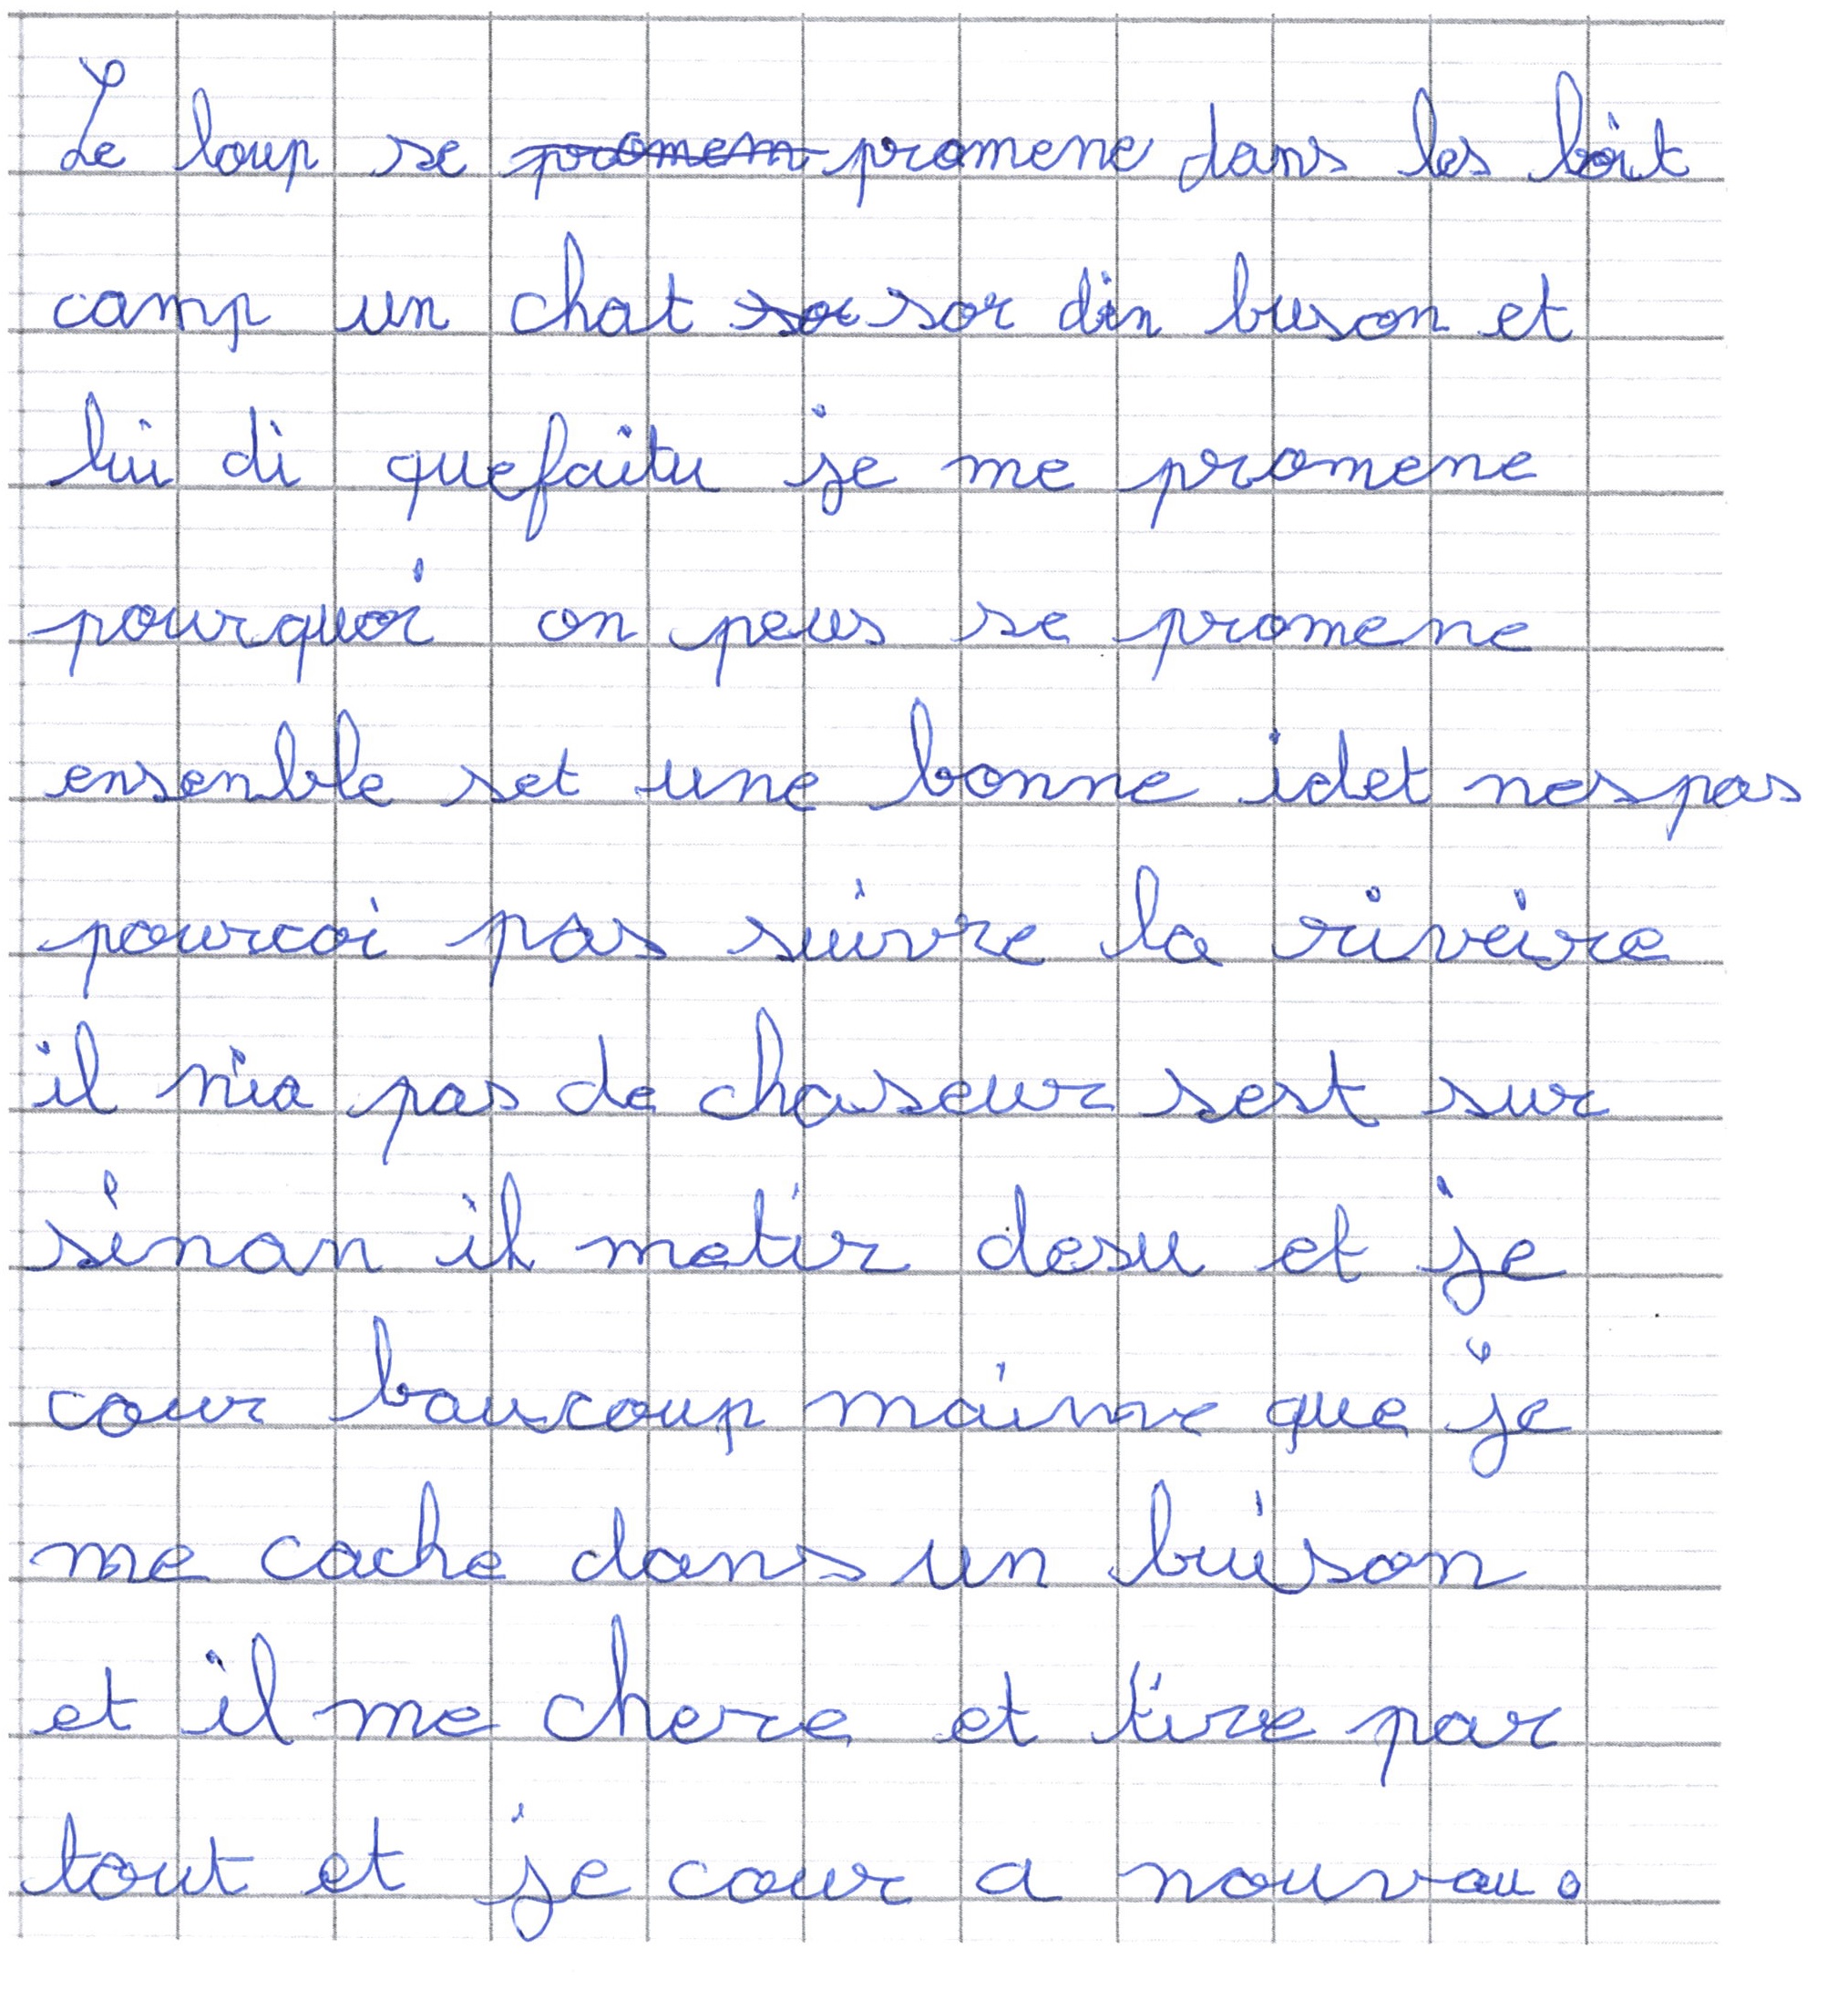 Le loup se promem promene dans les boit
camp un chat so sor din buson et
lui di quefaitu je me promene
pourquoi on peus se promene
ensenble set une bonne idet nespas
pourcoi pas suivre la riveire
il nia pas de chaseur sest sur
sinon il metir desu et je
cour baucoup maime que je
me cache dans un buison
et il me chere et tire par
tout et je cour a nouvau.